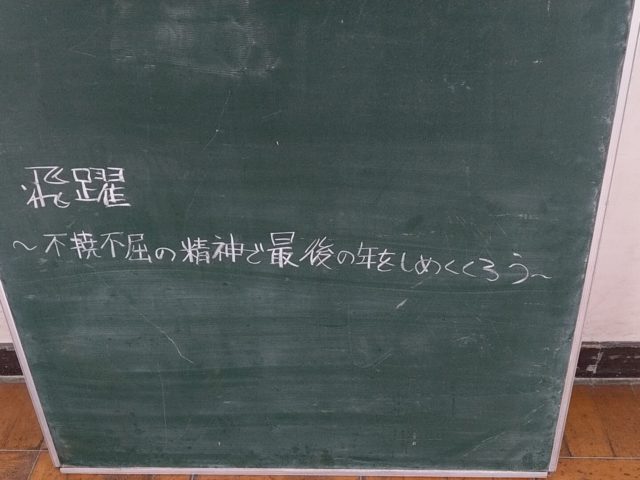 飛躍
~不撓不屈の精神で最後の年をしめくくろう~